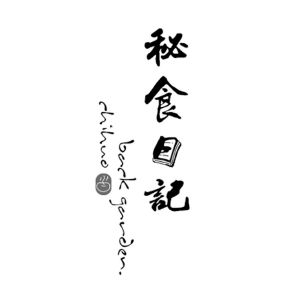 秘食日記
back garden.
chihuo